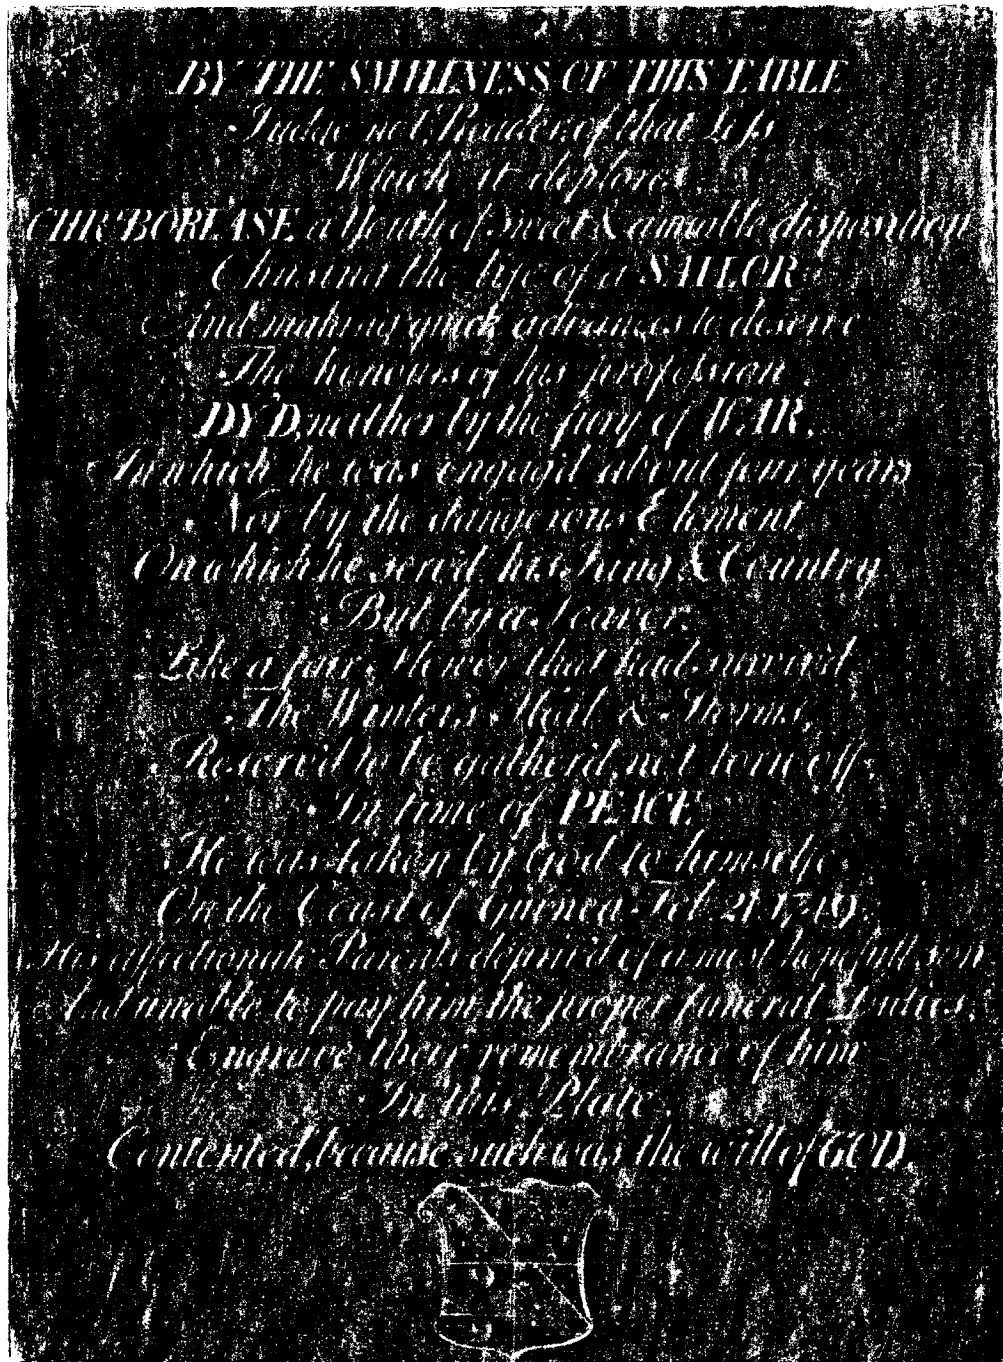 BY THE SMALLNESS OF THIS TABLE
Judge not, Reader, of that Loss
Which it deplores.
CHR. BORLASE a Youth of Sweet & amiable disposition
Chusing the life of a SAILOR
And making quick advances to deserve
The honours of his profession
DY'D, neither by the fury of WAR,
In which he was engag'd about four years
Nor by the dangerous Element
On which he serv'd his King & Country
But by a Feaver,
Like a fair Flower that had surviv'd
The Winter's Hail & Storms,
Reserv'd to be gather'd, not torn off.
In time of PEACE
He was taken by God to himself
On the Coast of Guinea Feb. 21 1749.
His affectionate Parents depriv'd of a most hopefull son
And unable to pay him the proper funeral Duties,
Engrave their remembrance of him
In this Plate.
Contented, because such was the will of GOD.